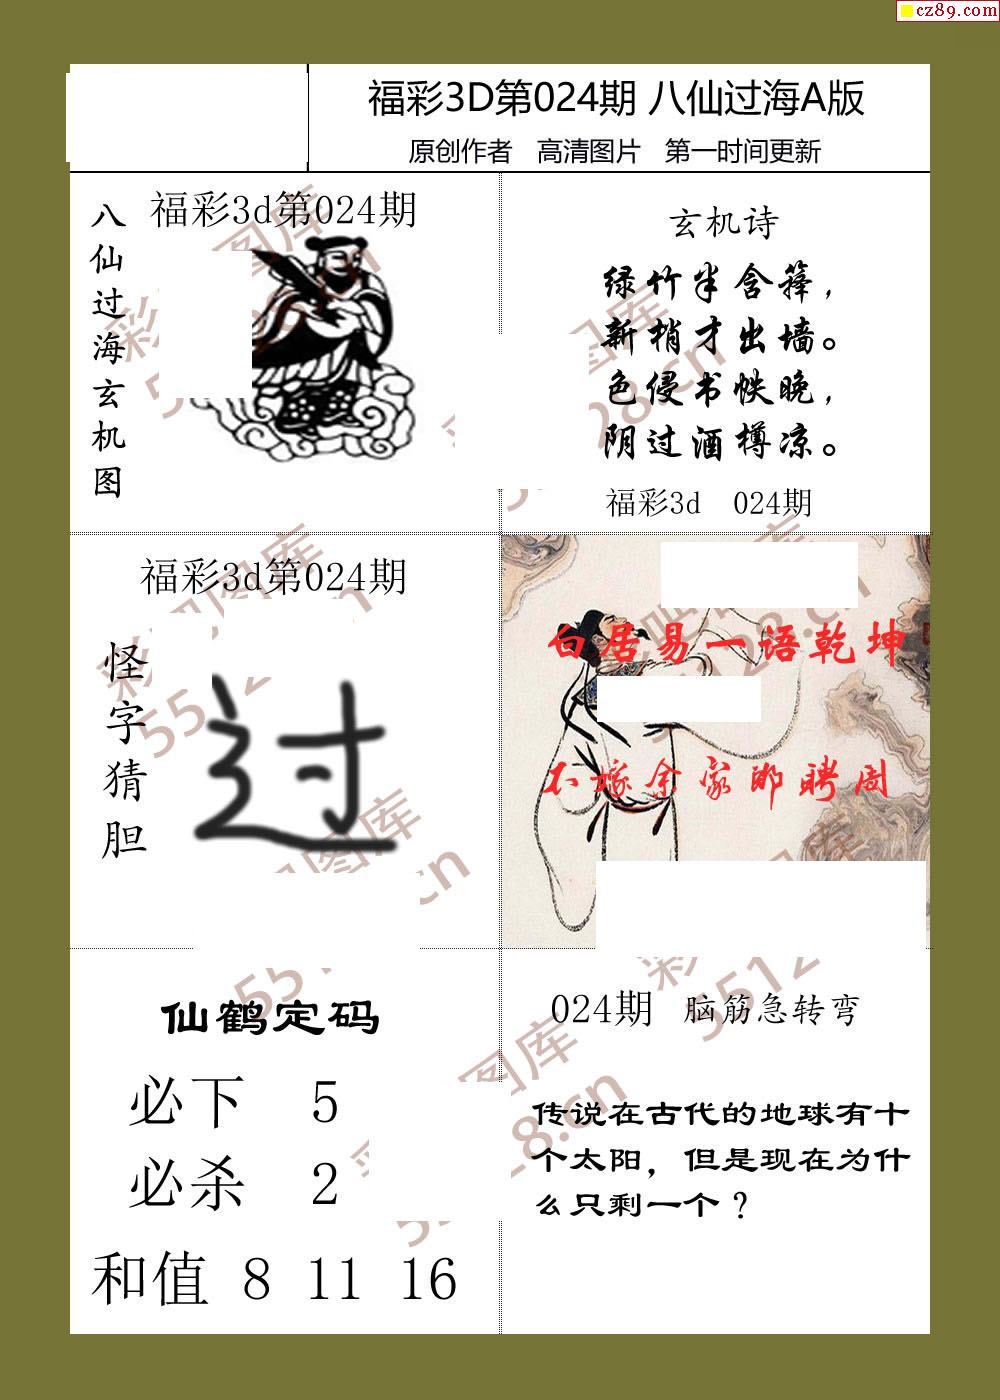 cz89.com
福彩3D第024期 八仙过海A版
原创作者 高清图片 第一时间更新
八仙过海玄机图
福彩3d第024期
玄机诗
绿竹半含箨，
新梢才出墙。
色侵书帙晚，
阴过酒樽凉。
福彩3d 024期
福彩3d第024期
怪字猜胆
过
白居易一语乾坤
不嫁余家郎聘周
仙鹤定码
必下 5
必杀 2
和值 8 11 16
024期 脑筋急转弯
传说在古代的地球有十
个太阳，但是现在为什
么只剩一个？